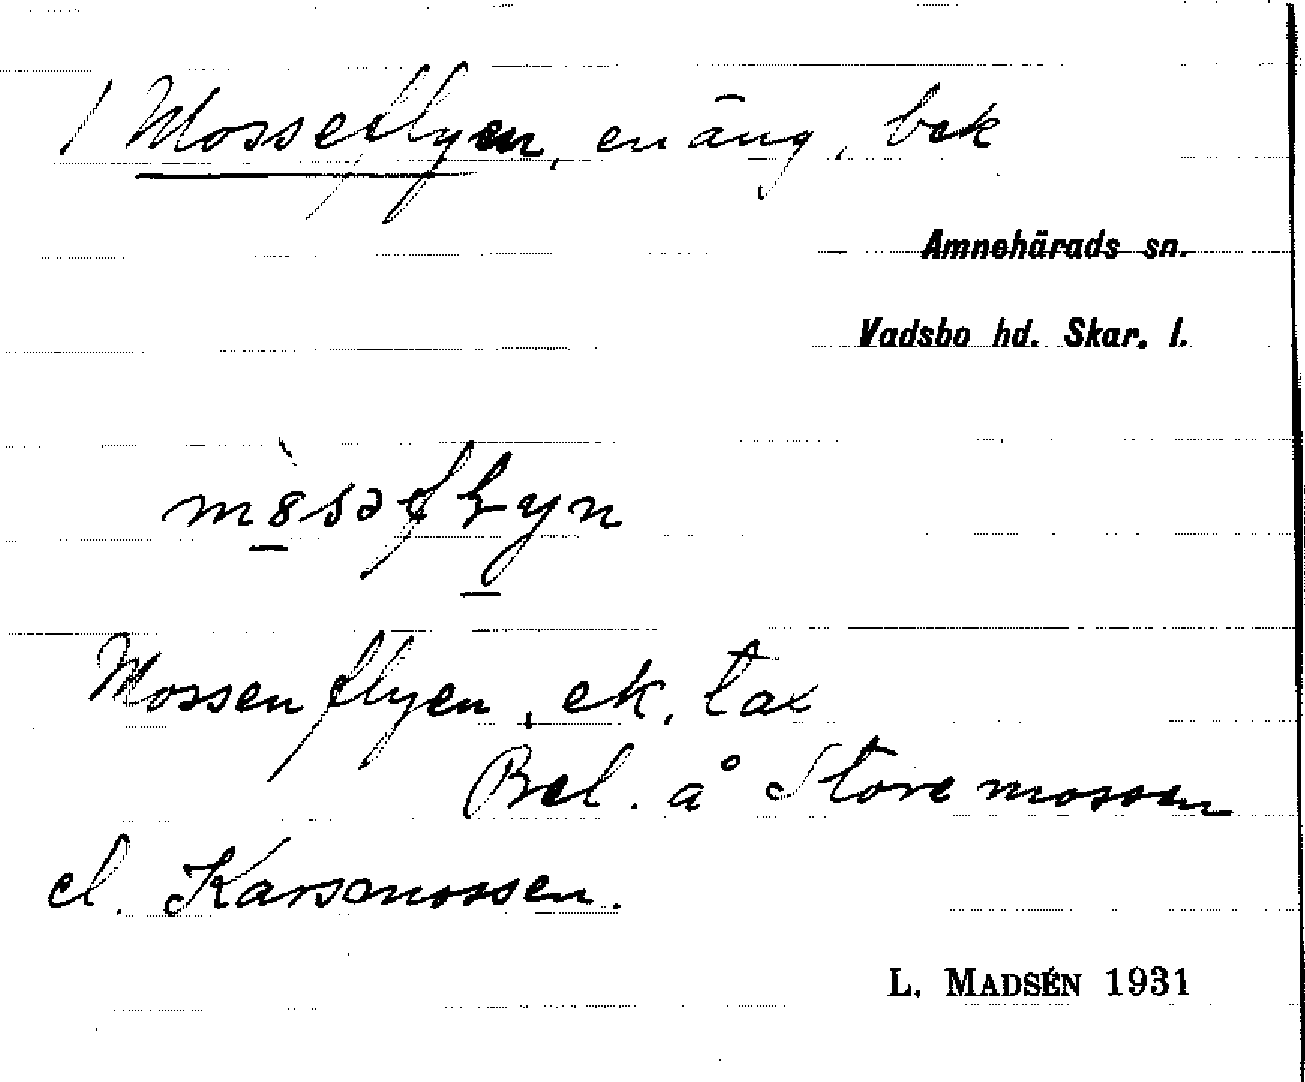 / Mosseflyen, en äng, bek
Amnehärads sn.
Vadsbo hd. Skar. l.
m8̀səfɫyn
Mossenflyen, ek. tax
Bel. å Store mossen
el. Karsmossen.
L. MADSÉN 1931